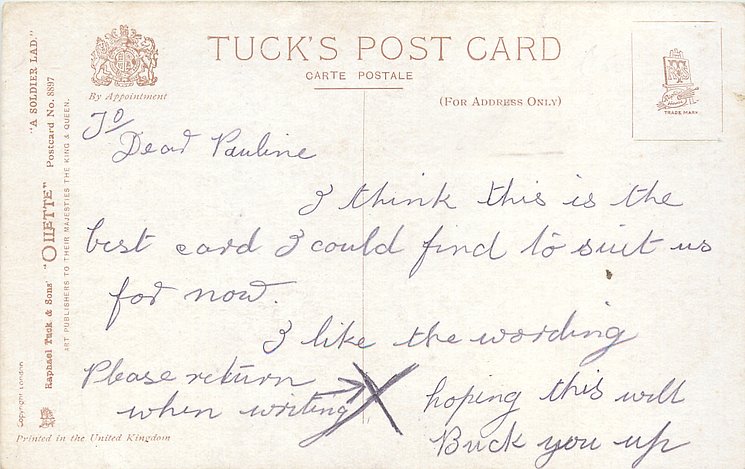 TUCK'S POST CARD
CARTE POSTALE
(FOR ADDRESS ONLY)
By Appointment
TRADE MARK
"A SOLDIER LAD."
"OILETTE" Postcard No. 8897
Raphael Tuck & Sons'
ART PUBLISHERS TO THEIR MAJESTIES THE KING & QUEEN.
Copyright London
Printed in the United Kingdom
To
Dear Pauline
I think this is the
best card I could find to suit us
for now.
I like the wording
Please return
when writing X
hoping this will
Buck you up